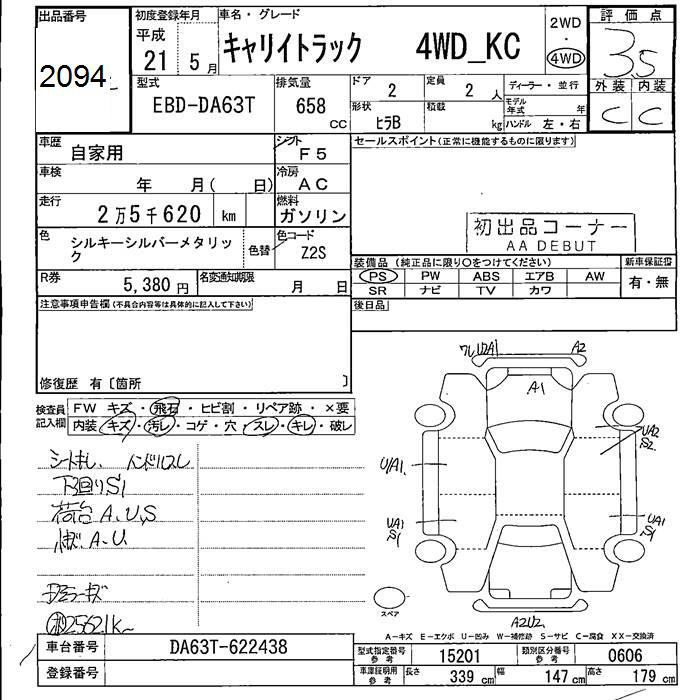 出品番号
2094
初度登録年月
平成
21 5 月
車名・グレード
キャリイトラック 4WD_KC
2WD
・
4WD
評価点
3.5
外装 内装
C C
型式
EBD-DA63T
排気量
658
CC
ドア 2
定員 2 人
ディーラー・並行
形状 ヒラB
積載 kg
モデル年式 年
ハンドル 左・右
車歴
自家用
シフト
F5
セールスポイント(正常に機能するものに限ります)
車検
年 月( 日)
冷房
AC
走行
2万5千620 km
燃料
ガソリン
初出品コーナー
AA DEBUT
色
シルキーシルバーメタリック
色替
色コード
Z2S
装備品(純正品に限り〇をつけてください)
新車保証書
PS PW ABS エアB AW
有・無
SR ナビ TV カワ
R券
5,380 円
名変通知期限
月 日
後日品
注意事項申告欄(不具合内容等は具体的に記入して下さい)
修復歴 有〔箇所 〕
検査員記入欄
FW キズ・飛石・ヒビ割・リペア跡・×要
内装 キズ・汚レ・コゲ・穴・スレ・キレ・破レ
シートキレ、ハンドルスレ
下廻りS1
荷台A、U、S
A、U
25621K~
ワレU2A1 A2
A1
UA2
S2
U/A1
UA1
S1
UA1
S1
A2U2
スペア
A-キズ E-エクボ U-凹み W-補修跡 S-サビ C-腐食 XX-交換済
車台番号
DA63T-622438
登録番号
型式指定番号 参考 15201
類別区分番号 参考 0606
車庫証明用 参考 長さ 339 cm 幅 147 cm 高さ 179 cm